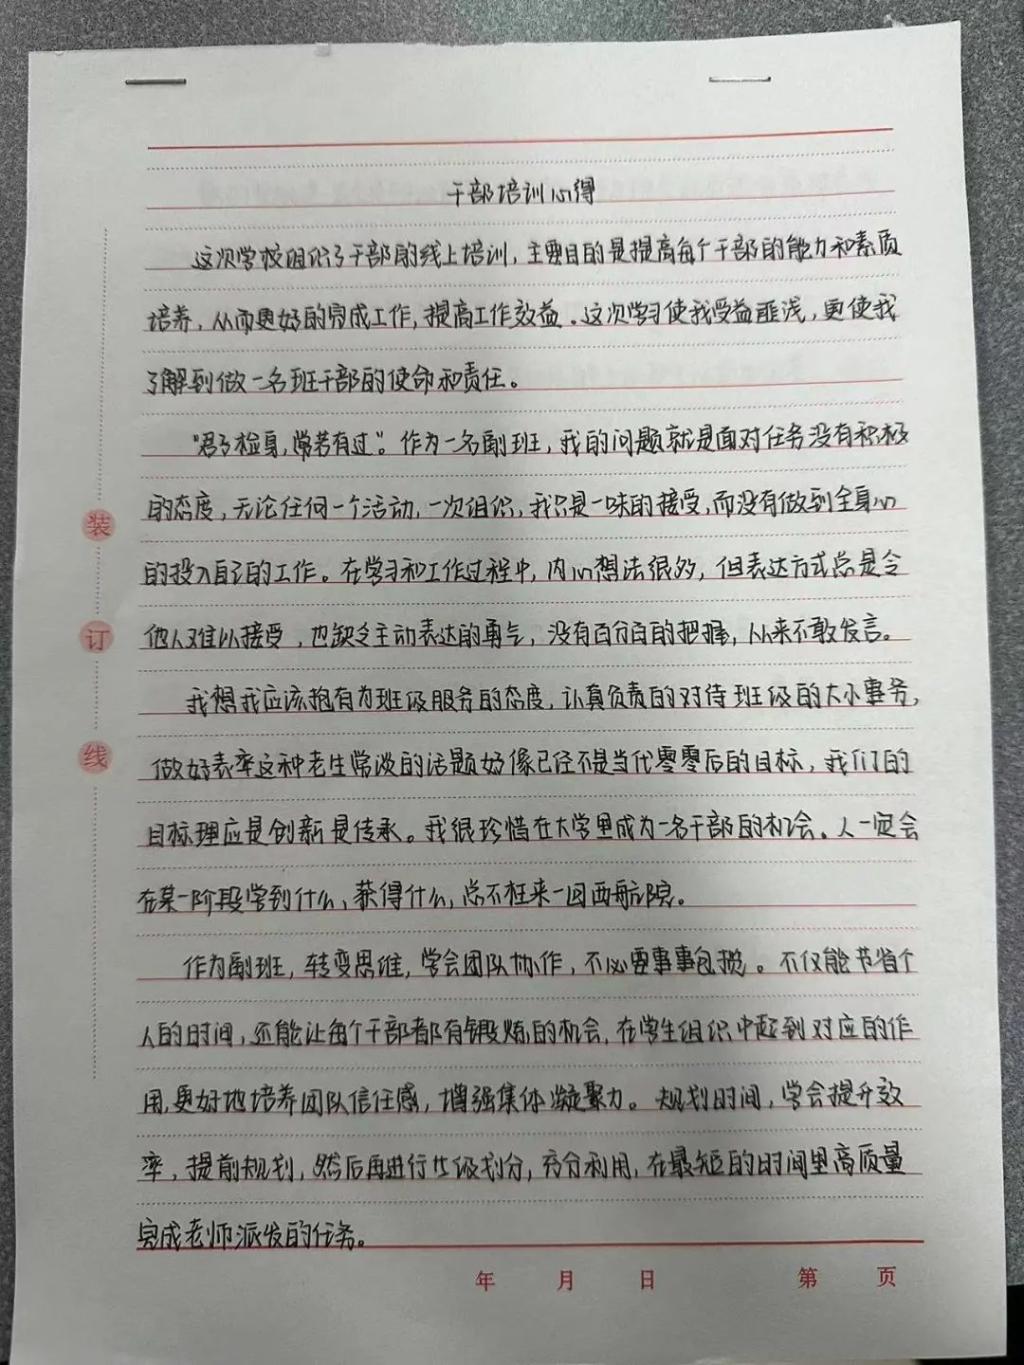 干部培训心得
这次学校组织了干部的线上培训，主要目的是提高每个干部的能力和素质
培养，从而更好的完成工作，提高工作效益。这次学习使我受益匪浅，更使我
了解到做一名班干部的使命和责任。
“君子检身，常若有过”。作为一名副班，我的问题就是面对任务没有积极
的态度，无论任何一个活动，一次组织，我只是一味的接受，而没有做到全身心
的投入自己的工作。在学习和工作过程中，内心想法很多，但表达方式总是令
他人难以接受，也缺乏主动表达的勇气，没有百分百的把握，从来不敢发言。
我想我应该抱有为班级服务的态度，认真负责的对待班级的大小事务，
做好表率这种老生常谈的话题好像已经不是当代零零后的目标，我们的
目标理应是创新是传承。我很珍惜在大学里成为一名干部的机会。人一定会
在某一阶段学到什么，获得什么，总不枉来一回西航院。
作为副班，转变思维，学会团队协作，不必要事事包揽。不仅能节省个
人的时间，还能让每个干部都有锻炼的机会，在学生组织中起到对应的作
用，更好地培养团队信任感，增强集体凝聚力。规划时间，学会提升效
率，提前规划，然后再进行比级划分，充分利用，在最短的时间里高质量
完成老师派发的任务。
装
订
线
年 月 日 第 页